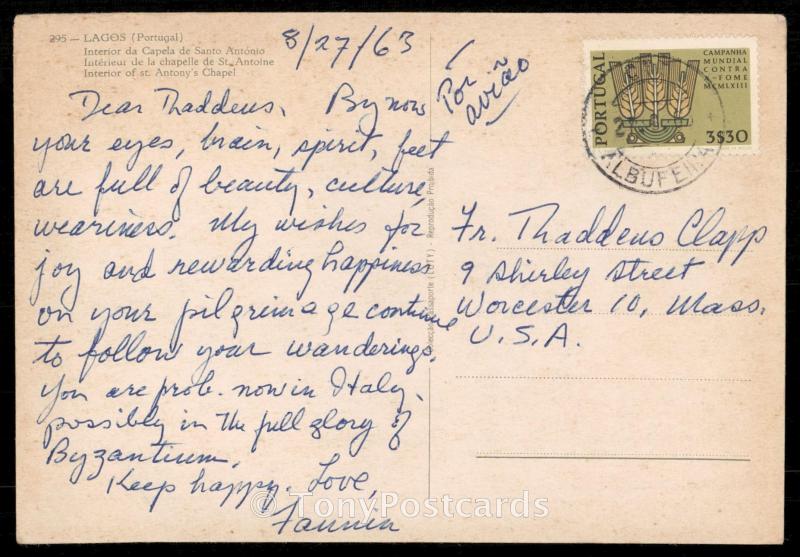 295 — LAGOS (Portugal)
Interior da Capela de Santo António
Intérieur de la chapelle de St. Antoine
Interior of st. Antony's Chapel
8/27/63
Dear Thaddeus, By now
your eyes, brain, spirit, feet
are full of beauty, culture,
weariness. My wishes for
joy and rewarding happiness
on your pilgrimage continue
to follow your wanderings.
You are prob. now in Italy,
possibly in the full glory of
Byzantium.
Keep happy. Love,
Por
avião
Fr. Thaddeus Clapp
9 Shirley Street
Worcester 10, Mass.
U.S.A.
PORTUGAL
CAMPANHA
MUNDIAL
CONTRA
A FOME
MCMLXIII
3$30
ALBUFEIRA
Reprodução Proibida
© TonyPostcards